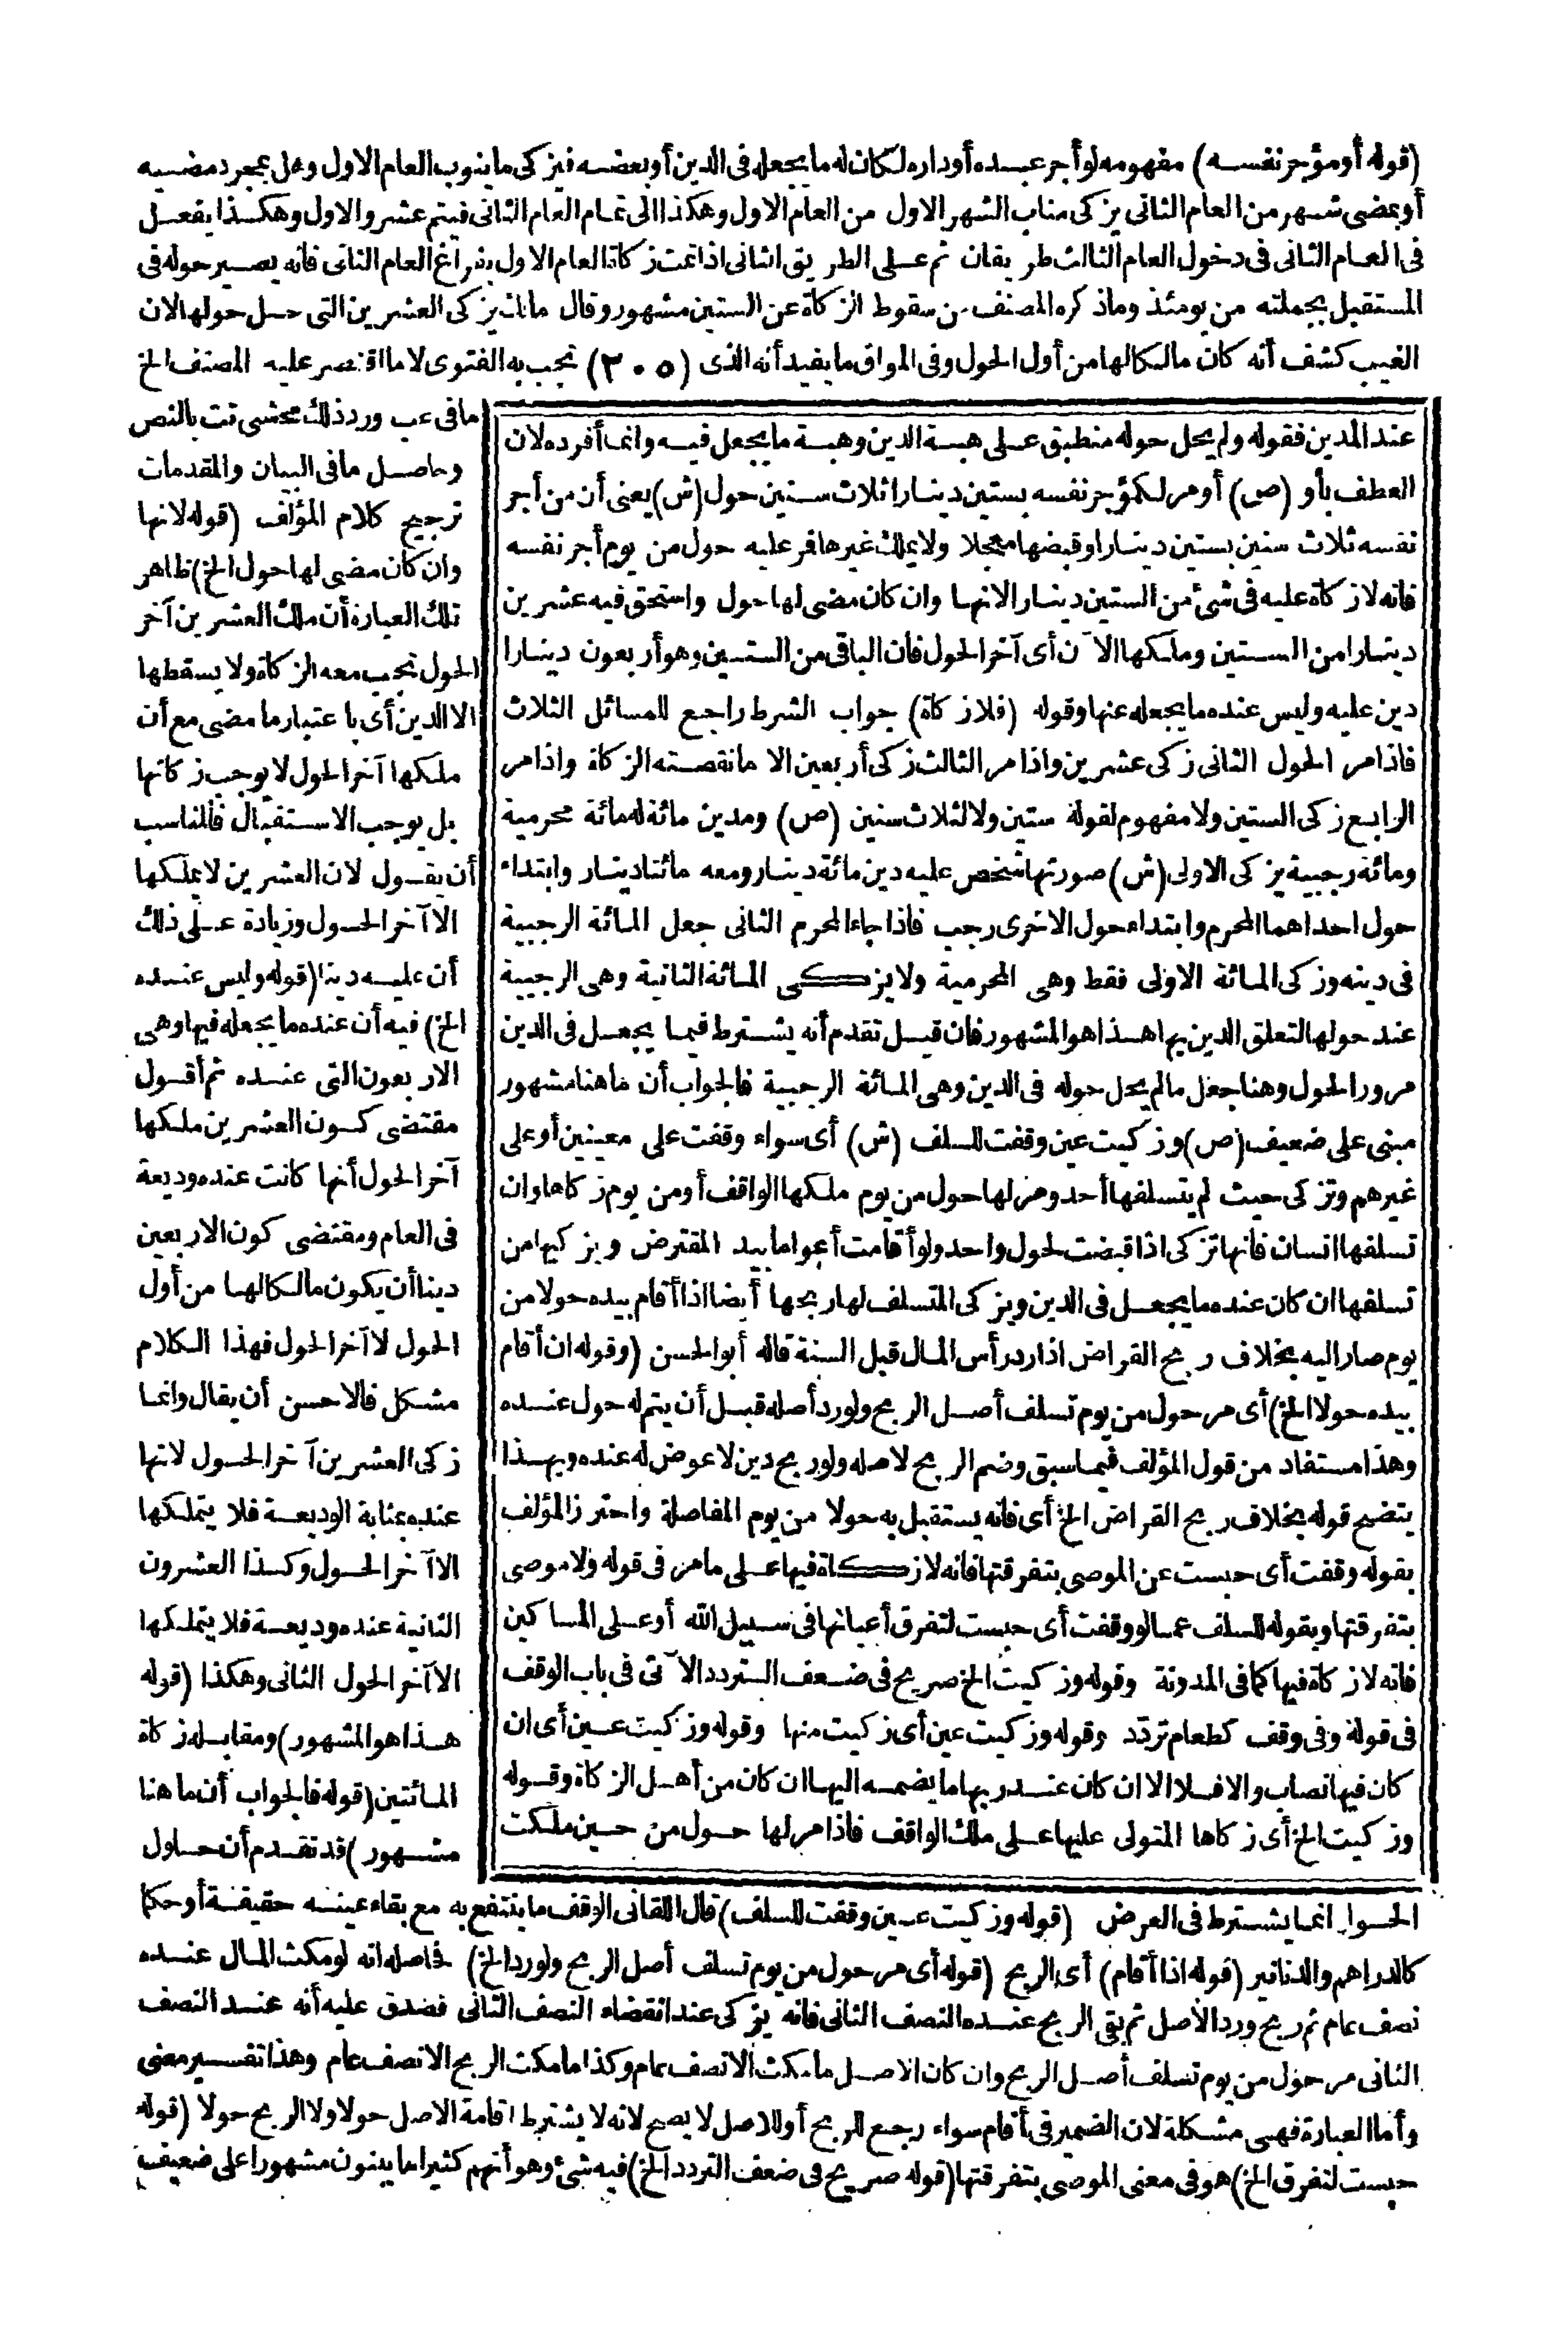 (قوله أو مؤجر نفسه) مفهومه لو أجر عبده أو داره لكان له ما يجعله في الدين أو بعضه فيزكي ما ينوب العام الاول وهل بمجرد مضيه
أو بمضي شهر من العام الثاني يزكي مناب الشهر الاول من العام الاول وهكذا الى تمام العام الثاني فيتم عشر والاول وهكذا يفعل
في العام الثاني في دخول العام الثالث طريقان ثم على الطريق الثاني اذا تمت زكاة العام الاول بفراغ العام الثاني فانه يصير حوله في
المستقبل بجملته من يومئذ وما ذكره المصنف من سقوط الزكاة عن الستين مشهور وقال مالك يزكي العشرين التي حل حولها الآن
الغيب كشف أنه كان مالكا لها من أول الحول وفي المواق ما يفيد أنه الذي (٢٠٥) تجب به الفتوى لا ما اقتصر عليه المصنف الخ
عند المدين فقوله ولم يحل حوله منطبق على هبة الدين وهبة ما يجعل فيه وانما أفرده لان
العطف بأو (ص) أو مر لكمؤجر نفسه بستين دينارا ثلاث سنين حول (ش) يعني أن من أجر
نفسه ثلاث سنين بستين دينارا وقبضها معجلا ولا يملك غيرها فمر عليه حول من يوم أجر نفسه
فانه لا زكاة عليه في شئ من الستين دينارا لانها وان كان مضى لها حول واستحق فيه عشرين
دينارا من الستين وملكها الآن أى آخر الحول فان الباقي من الستين وهو أربعون دينارا
دين عليه وليس عنده ما يجعله عنها وقوله (فلا زكاة) جواب الشرط راجع للمسائل الثلاث
فاذا مر الحول الثاني زكى عشرين واذا مر الثالث زكى أربعين الا ما نقصته الزكاة واذا مر
الرابع زكى الستين ولا مفهوم لقوله ستين ولا لثلاث سنين (ص) ومدين مائة له مائة محرمية
ومائة رجبية يزكي الاولى (ش) صورتها شخص عليه دين مائة دينار ومعه مائتا دينار وابتداء
حول احداهما المحرم وابتداء حول الاخرى رجب فاذا جاء المحرم الثاني جعل المائة الرجبية
في دينه وزكى المائة الاولى فقط وهي المحرمية ولا يزكي المائة الثانية وهي الرجبية
عند حولها لتعلق الدين بها هذا هو المشهور فان قيل تقدم أنه يشترط فيما يجعل في الدين
مرور الحول وهنا جعل ما لم يحل حوله في الدين وهي المائة الرجبية فالجواب أن ما هنا مشهور
مبني على ضعيف (ص) وزكيت عين وقفت للسلف (ش) أى سواء وقفت على معينين أو على
غيرهم وتزكى حيث لم يتسلفها أحد ومر لها حول من يوم ملكها الواقف أو من يوم زكاها وان
تسلفها انسان فانها تزكى اذا قبضت لحول واحد ولو أقامت أعواما بيد المقترض ويزكيها من
تسلفها ان كان عنده ما يجعل في الدين ويزكي المتسلف لها ربحها أيضا اذا أقام بيده حولا من
يوم صار اليه بخلاف ربح القراض اذا رد رأس المال قبل السنة قاله أبو الحسن (وقوله ان أقام
بيده حولا الخ) أى مر حول من يوم تسلف أصل الربح ولو رد أصله قبل أن يتم له حول عنده
وهذا مستفاد من قول المؤلف فيما سبق وضم الربح لاصله ولو ربح دين لا عوض له عنده وبهذا
يتضح قوله بخلاف ربح القراض الخ أى فانه يستقبل به حولا من يوم المفاصلة واحترز المؤلف
بقوله وقفت أى حبست عن الموصى بتفرقتها فانه لا زكاة فيها على ما مر في قوله ولا موصى
بتفرقتها وبقوله للسلف عما لو وقفت أى حبست لتفرق أعيانها في سبيل الله أو على المساكين
فانه لا زكاة فيها كما في المدونة وقوله وزكيت الخ صريح في ضعف التردد الآتى في باب الوقف
في قوله وفي وقف كطعام تردد وقوله وزكيت عين أى زكيت منها وقوله وزكيت عين أى ان
كان فيها نصاب والا فلا الا ان كان عند ربها ما يضمه اليها ان كان من أهل الزكاة وقوله
وزكيت الخ أى زكاها المتولى عليها على ملك الواقف فاذا مر لها حول من حين ملكت
ما في عب ورد ذلك محشي تت بالنص
وحاصل ما في البيان والمقدمات
ترجيح كلام المؤلف (قوله لانها
وان كان مضى لها حول الخ) ظاهر
تلك العبارة أن ملك العشرين آخر
الحول تجب معه الزكاة ولا يسقطها
الا الدين أى باعتبار ما مضى مع أن
ملكها آخر الحول لا يوجب زكاتها
بل يوجب الاستقبال فالمناسب
أن يقول لان العشرين لا يملكها
الا آخر الحول وزيادة على ذلك
أن عليه دينا (قوله وليس عنده
الخ) فيه أن عنده ما يجعله فيها وهي
الاربعون التي عنده ثم أقول
مقتضى كون العشرين ملكها
آخر الحول أنها كانت عنده وديعة
في العام ومقتضى كون الاربعين
دينا أن يكون مالكا لها من أول
الحول لا آخر الحول فهذا الكلام
مشكل فالاحسن أن يقال وانما
زكى العشرين آخر الحول لانها
عنده بمثابة الوديعة فلا يتملكها
الا آخر الحول وكذا العشرون
الثانية عنده وديعة فلا يتملكها
الا آخر الحول الثاني وهكذا (قوله
هذا هو المشهور) ومقابله زكاة
المائتين (قوله فالجواب أن ما هنا
مشهور) قد تقدم أن حلول
الحول انما يشترط في العرض (قوله وزكيت عين وقفت للسلف) قال اللقاني الوقف ما ينتفع به مع بقاء عينه حقيقة أو حكما
كالدراهم والدنانير (قوله اذا أقام) أى الربح (قوله أى مر حول من يوم تسلف أصل الربح ولو رد الخ) فحاصله انه لو مكث المال عنده
نصف عام ثم ربح ورد الأصل ثم بقى الربح عنده النصف الثاني فانه يزكى عند انقضاء النصف الثاني فصدق عليه أنه عند النصف
الثاني مر حول من يوم تسلف أصل الربح وان كان الاصل ما مكث الا نصف عام وكذا ما مكث الربح الا نصف عام وهذا تفسير معنى
وأما العبارة فهي مشكلة لان الضمير في أقام سواء رجع للربح أو للاصل لا يصح لانه لا يشترط اقامة الاصل حولا ولا الربح حولا (قوله
حبست لتفرق الخ) هو في معنى الموصى بتفرقتها (قوله صريح في ضعف التردد الخ) فيه شئ وهو أنهم كثيرا ما يبنون مشهورا على ضعيف